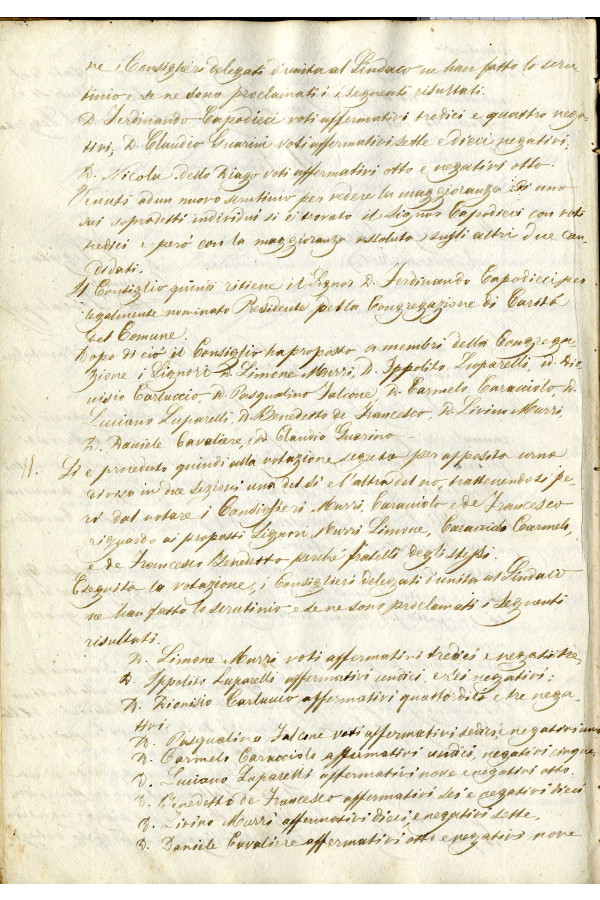 ne i Consiglieri delegati d'unita al Sindaco ne han fatto lo scru-
tinio e se ne sono proclamati i seguenti risultati.
D. Ferdinando Capodieci voti affermativi tredici e quattro nega-
tivi, D. Claudio Guarini voti affermativi sette e dieci negativi,
D. Nicola dello Diago voti affermativi otto e negativi otto.
Venuti ad un nuovo scrutinio per vedere la maggioranza di uno
sui sopradetti individui si è trovato il Signor Capodieci con voti
tredici e però con la maggioranza assoluta sugli altri due can-
didati.
Il Consiglio quindi ritiene il Signor D. Ferdinando Capodieci per
legalmente nominato Presidente della Congregazione di Carità
del Comune.
Dopo di ciò il Consiglio ha proposto a membri della Congrega-
zione i Signori D. Simone Murri, D. Ippolito Luparelli, D. Dio-
nisio Carluccio, D. Pasqualino Falcone, D. Carmelo Caracciolo, D.
Luciano Luparelli, D. Benedetto de Francesco, D. Livino Murri,
D. Daniele Cavaliere, D. Claudio Guarino.
Si è proceduto quindi alla votazione segreta per apposita urna
divisa in due sezioni una del sì e l'altra del no, trattenendosi pe-
rò dal votare i Consiglieri Murri, Caracciolo e de Francesco
riguardo ai proposti Signori Murri Simone, Caracciolo Carmelo,
e de Francesco Benedetto perché fratelli degli stessi.
Eseguita la votazione, i Consiglieri delegati d'unita al Sindaco
ne han fatto lo scrutinio e se ne sono proclamati i seguenti
risultati.
D. Simone Murri voti affermativi tredici e negativi tre,
D. Ippolito Luparelli affermativi undici, e sei negativi;
D. Dionisio Carluccio affermativi quattordici e tre nega-
tivi.
D. Pasqualino Falcone voti affermativi sedici, negativi uno
D. Carmelo Caracciolo affermativi undici, negativi cinque,
D. Luciano Luparelli affermativi nove e negativi otto.
D. Benedetto de Francesco affermativi sei e negativi dieci
D. Livino Murri affermativi dieci e negativi sette,
D. Daniele Cavaliere affermativi otto e negativi nove